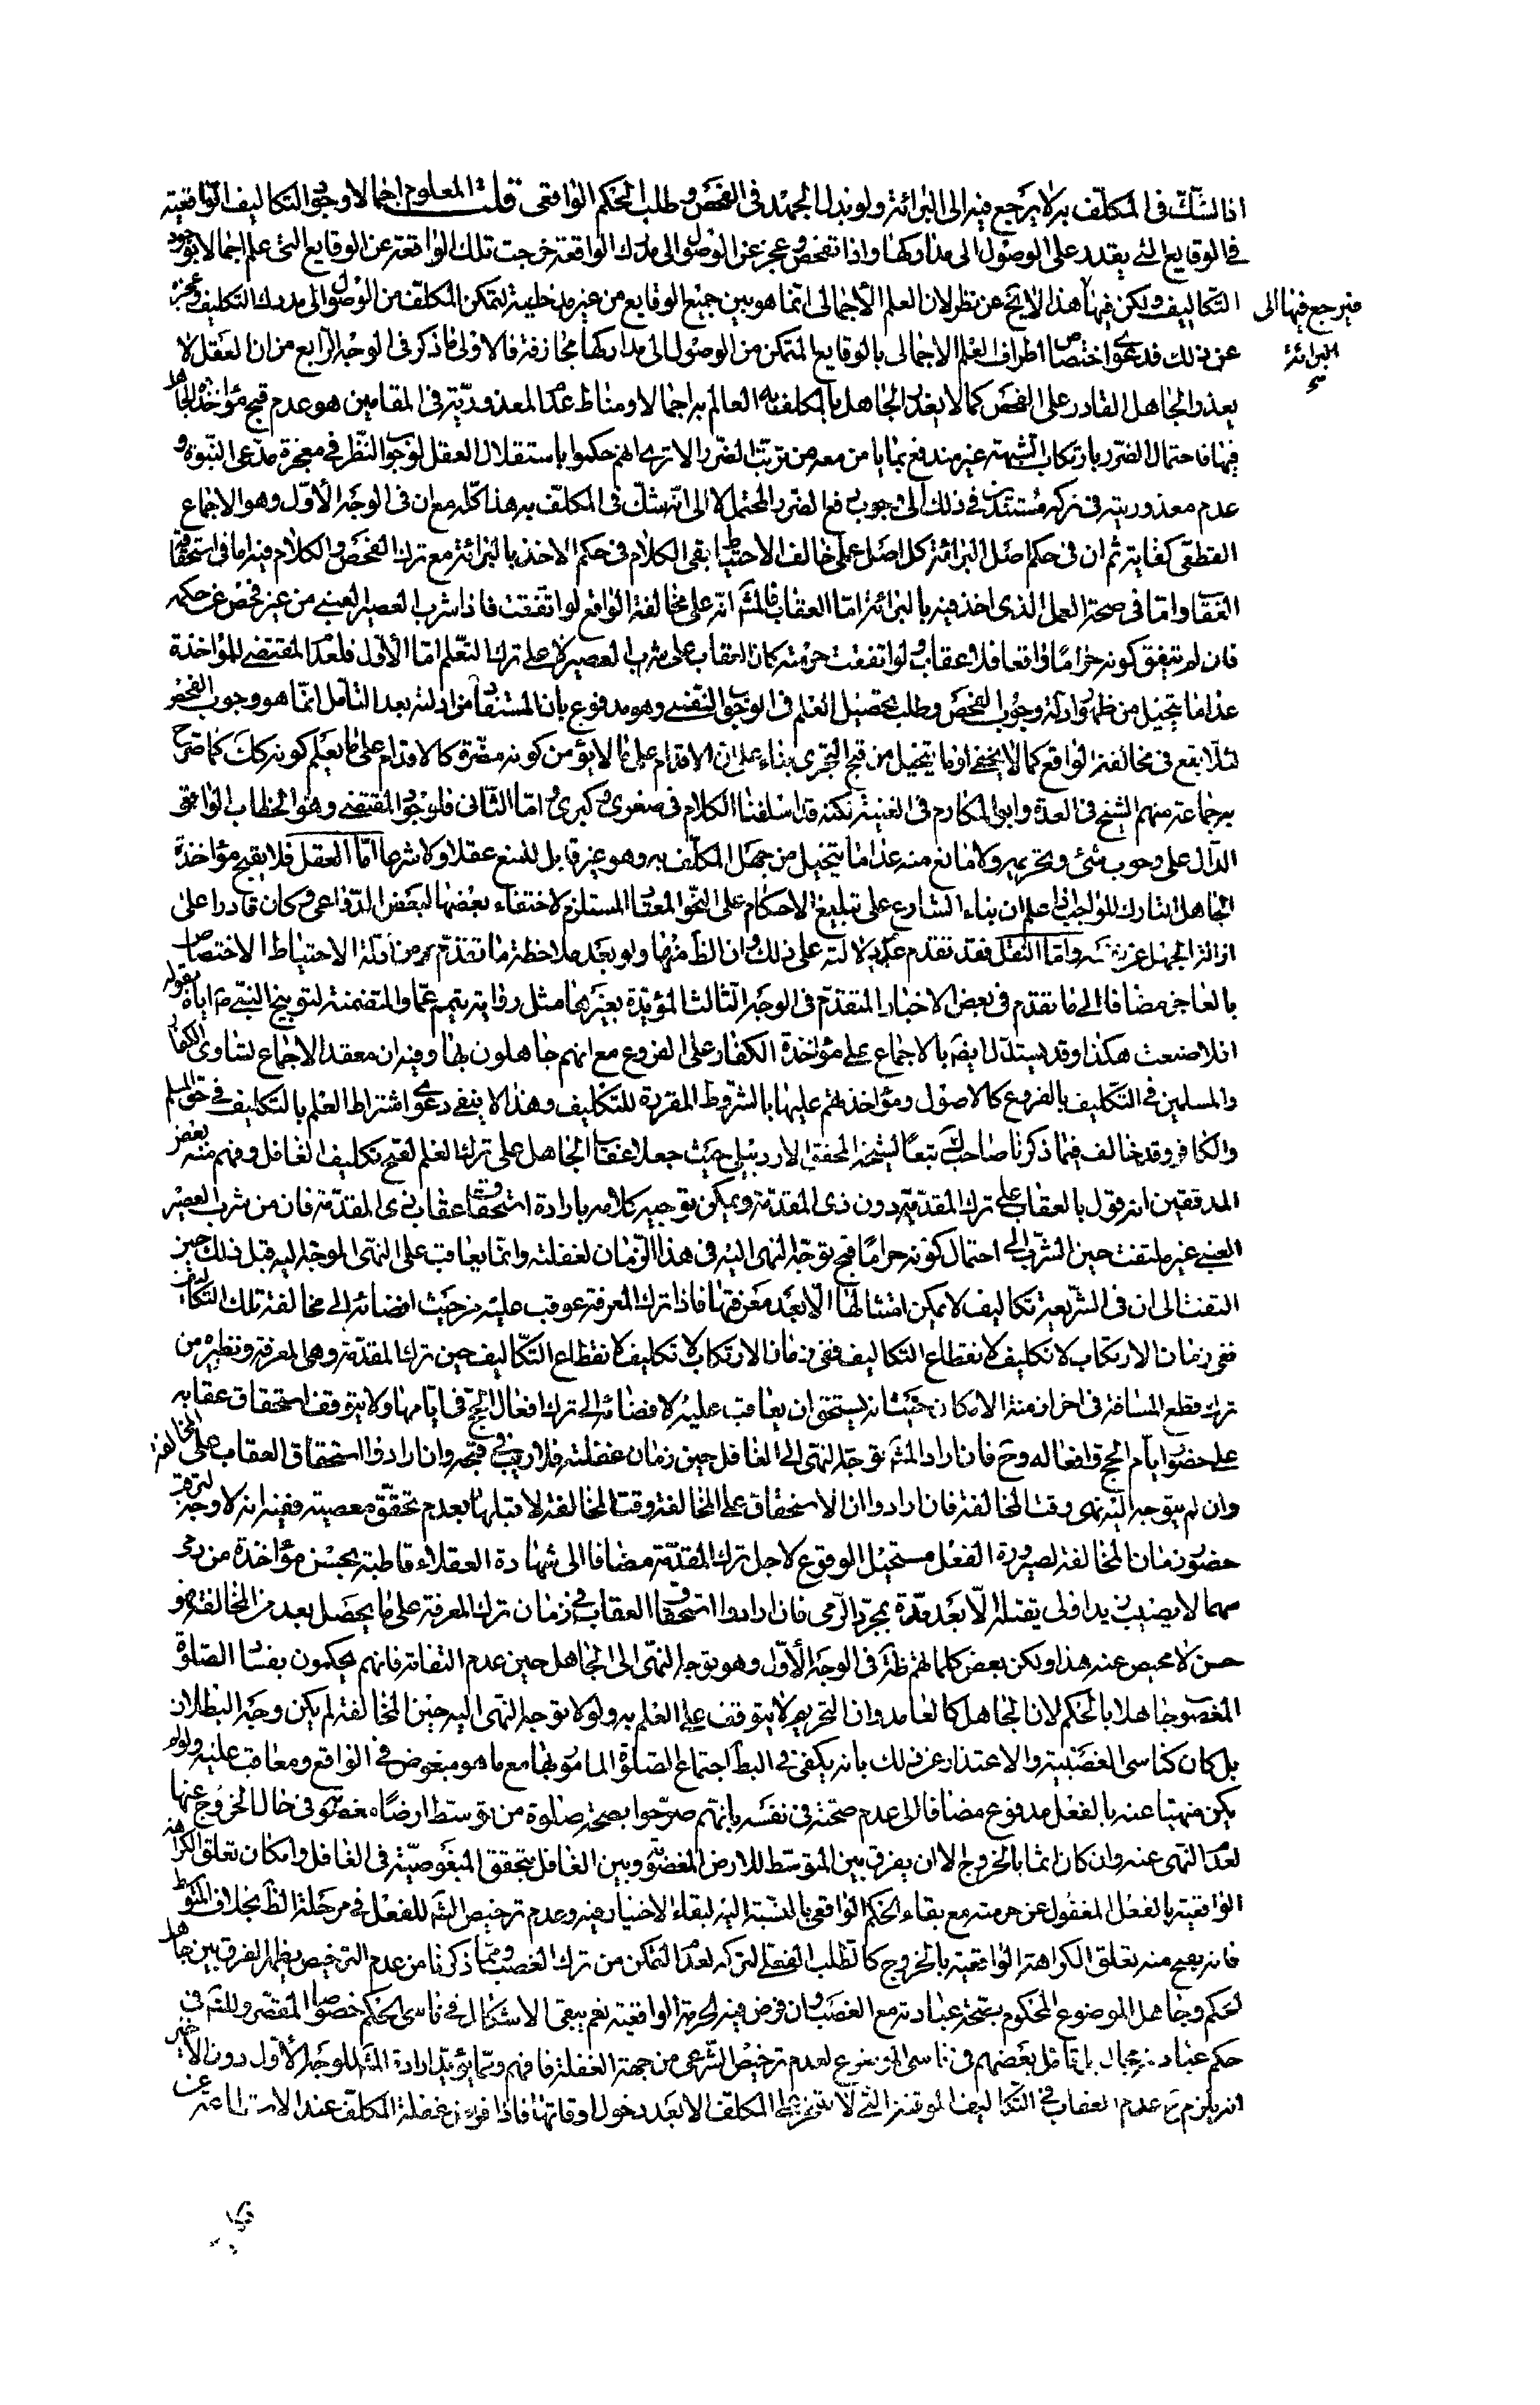 اذ الشّكّ فى المكلّف به لا يرجع فيه الى البرائة ولو بذل الجهد فى الفحص وطلب الحكم الواقعى قلت المعلوم اجمالا وجود التكاليف الواقعيّة
فى الوقايع الّتى يقدر على الوصول الى مداركها واذا تفحّص وعجز عن الوصول الى مدرك الواقعة خرجت تلك الواقعة عن الوقايع الّتى علم اجمالا بوجود
التّكاليف فيها
فيرجع فيها الى
البرائة
ولكن هذا لا يخ عن نظر لان العلم الاجمالى انّما هو بين جميع الوقايع من غير مدخلية لتمكن المكلّف من الوصول الى مدرك التكليف وعجزه
عن ذلك فدعوى اختصاص اطراف العلم الاجمالى بالوقايع المتمكن من الوصول الى مداركها مجازفة فالاولى ما ذكر فى الوجه الرّابع من ان العقل لا
يعذر الجاهل القادر على الفحص كما لا يعذر الجاهل بالمكلف به العالم به اجمالا ومناط عدم المعذوريّة فى المقامين هو عدم قبح مؤاخذة الجاهل
فيهما فاحتمال الضّرر بارتكاب الشّبهة غير مندفع بما يامن معه من ترتّب الضّرر الا ترى انهم حكموا باستقلال العقل بوجوب النّظر فى معجزة مدّعى النّبوّة و
عدم معذوريته فى تركه مستندين فى ذلك الى وجوب دفع الضّرر المحتمل لا الى انّه شكّ فى المكلّف به هذا كلّه مع ان فى الوجه الأوّل وهو الاجماع
القطعى كفاية ثم ان فى حكم اصل البرائة كل اصل عملى خالف الاحتياط بقى الكلام فى حكم الاخذ بالبرائة مع ترك الفحص والكلام فيه اما فى استحقاق
العقاب واما فى صحة العمل الذى اخذ فيه بالبرائة امّا العقاب فالمش انّه على مخالفة الواقع لو اتفقت فاذا شرب العصير العنبى من غير فحص عن حكمه
فان لم يتفق كونه حراما واقعا فلا عقاب ولو اتفقت حرمته كان العقاب على شرب العصير لا على ترك التعلّم امّا الأوّل فلعدم المقتضى للمؤاخذة
عدا ما يتخيل من ظهور ادلّة وجوب الفحص وطلب تحصيل العلم فى الوجوب النّفسى وهو مدفوع بان المستفاد من ادلّته بعد التأمّل انّما هو وجوب الفحص
لئلّا يقع فى مخالفة الواقع كما لا يخفى او ما يتخيل من قبح التجرى بناء على ان الاقدام على ما لا يؤمن كونه مضرّة كالاقدام على ما يعلم كونه كك كما صرّح
به جماعة منهم الشيخ فى العدة وابو المكارم فى الغنية لكنه قد اسلفنا الكلام فى صغرى وكبرى امّا الثّانى فلوجود المقتضى وهو الخطاب الواقعى
الدّال على وجوب شئ وتحريمه ولا مانع منه عدا ما يتخيل من جهل المكلّف به وهو غير قابل للمنع عقلا ولا شرعا امّا العقل فلا يقبح مؤاخذة
الجاهل التارك للواجب اذا علم ان بناء الشارع على تبليغ الاحكام على النحو المعتاد المستلزم لاختفاء بعضها لبعض الدّواعى وكان قادرا على
ازالة الجهل عن نفسه وامّا النّقل فقد تقدم عدم دلالته على ذلك وان الظ منها ولو بعد ملاحظة ما تقدّم من ادلّة الاحتياط الاختصاص
بالعاجز مضافا الى ما تقدم فى بعض الاخبار المتقدّم فى الوجه الثالث المؤيّدة بغيرها مثل رواية تيمم عمّار المتضمّنة لتوبيخ النّبىّ ص ايّاه بقوله
افلا صنعت هكذا وقد يستدل ايضا بالاجماع على مؤاخذة الكفار على الفروع مع انهم جاهلون بها وفيه ان معقد الاجماع تساوى الكفّار
والمسلمين فى التّكليف بالفروع كالاصول ومؤاخذتهم عليها بالشّروط المقررة للتّكليف وهذا لا ينفى دعوى اشتراط العلم بالتكليف فى حق المسلم
والكافر وقد خالف فيما ذكرنا صاحب ك تبعًا لشيخه المحقق الاردبيلى حيث جعلا عقاب الجاهل على ترك العلم لقبح تكليف الغافل وفهم منه بعض
المدققين انه قول بالعقاب على ترك المقدّمة دون ذى المقدّمة ويمكن توجيه كلامه بارادة استحقاق عقاب ذى المقدّمة فان من شرب العصير
العنبى غير ملتفت حين الشّرب الى احتمال كونه حرامًا قبح توجّه النّهى اليه فى هذا الزّمان لغفلته وانّما يعاقب على النّهى الموجّه اليه قبل ذلك حين
التفت الى ان فى الشّريعة تكاليف لا يمكن امتثالها الّا بعد معرفتها فاذا ترك المعرفة عوقب عليه من حيث افضائه الى مخالفة تلك التّكاليف
ففى زمان الارتكاب لا تكليف لانقطاع التكاليف ففى زمان الارتكاب لا تكليف لانقطاع التّكاليف حين ترك المقدّمة وهى المعرفة ونظيره من
ترك قطع المسافة فى اخر ازمنة الامكان حيث انه يستحق ان يعاقب عليه لافضائه الى ترك افعال الحجّ فى ايّامها ولا يتوقف استحقاق عقابه
على حضور ايّام الحج وافعاله وح فان اراد المش توجّه النّهى الى الغافل حين زمان غفلته فلا ريب فى قبحه وان ارادوا استحقاق العقاب على المخالفة
وان لم يتوجه اليه نهى وقت المخالفة فان ارادوا ان الاستحقاق على المخالفة وقت المخالفة لا قبلها بعدم تحقّق معصيته ففيه انه لا وجه لترقّب
حضور زمان المخالفة لصيرورة الفعل مستحيل الوقوع لاجل ترك المقدّمة مضافا الى شهادة العقلاء قاطبة بحسن مؤاخذة من رمى
سهما لا يصيب زيدا ولا يقتله الّا بعد مدّة بمجرّد الرّمى فان ارادوا استحقاق العقاب فى زمان ترك المعرفة على ما يحصل بعد من المخالفة فهو
حسن لا محيص عنه هذا ولكن بعض كلماتهم ظاهرة فى الوجه الأوّل وهو توجه النّهى الى الجاهل حين عدم التفاته فانهم يحكمون بفساد الصّلوة
المغصوب جاهلا بالحكم لان الجاهل كالعامد وان التحريم لا يتوقف على العلم به ولولا توجه النّهى اليه حين المخالفة لم يكن وجه البطلان
بل كان كناسى الغصبيّة والاعتذار عن ذلك بانه يكفى فى البط اجتماع الصّلوة المامور بها مع ما هو مبغوض فى الواقع ومعاقب عليه ولو لم
يكن منهيّا عنه بالفعل مدفوع مضافا الى عدم صحّته فى نفسه بانّهم صرّحوا بصحة صلوة من توسّط ارضًا مغصوبة فى حال الخروج عنها
لعدم النّهى عنه وان كان اثما بالخروج الا ان يفرق بين المتوسّط للارض المغصوبة وبين الغافل بتحقق المبغوضيّة فى الغافل وامكان تعلّق الكراهة
الواقعيّة بالفعل المغفول عن حرمته مع بقاء الحكم الواقعى بالنّسبة اليه لبقاء الاختيار فيه وعدم ترخيص الشّارع للفعل فى مرحلة الظّ بخلاف المتوسّط
فانه يقبح منه تعلق الكراهة الواقعية بالخروج كالطلب الفعلى لتركه لعدم التمكن من ترك الغصب وممّا ذكرنا من عدم الترخيص يظهر الفرق بين جاهل
الحكم وجاهل الموضوع المحكوم بصحّة عبادته مع الغصب وان فرض فيه الحرمة الواقعيّة نعم يبقى الاشكال فى ناسى الحكم خصوصا المقصّر وللتّامل فى
حكم عباد مجال بل تامّل بعضهم فى ناسى الموضوع لعدم ترخيص الشّرعى من جهة الغفلة فافهم وممّا يؤيد ارادة المش للوجه الأوّل دون الأخير
انه يلزم ح عدم العقاب فى التّكاليف الموقتة الّتى لا تتنجّز على المكلّف الا بعد دخول اوقاتها فاذا فرض غفلة المكلّف عند الاستطاعة عن